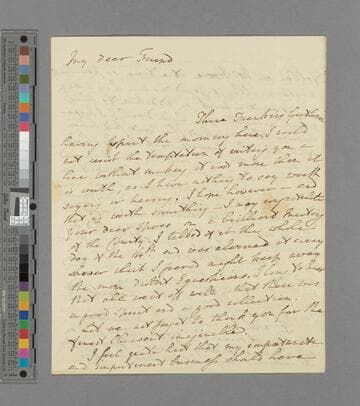 My dear Friend
Three Franking Gentlemen
having spent the morning here, I could
not resist the temptation of writing you a
line without making it cost more than it
is worth, as I have nothing to say worth
saying or hearing. I hope however — and
that is worth something — I may congratulate
your dear Spouse on a brilliant Meeting
of the County. I talked of it the whole
day of the and was alarmed at every
shower that I feared might keep away
the more distant Equestrians. I long to hear
that all went off well — that there was
a good Spirit and a good collection.
Let me not forget to thank you for the
finest imaginable.
I feel quite hurt that my importunate
and impertinent business should have